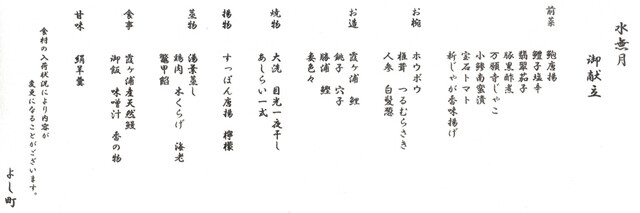 水無月
御献立
前菜
鮑唐揚
鱧子塩辛
翡翠茄子
豚黒酢煮
万願寺じゃこ
小鯵南蛮漬
宝石トマト
新じゃが香味揚げ
お椀
ホウボウ
椎茸 つるむらさき
人参 白髪葱
お造
霞ヶ浦 鯉
銚子 穴子
勝浦 鰹
妻色々
焼物
大洗 目光一夜干し
あしらい一式
揚物
すっぽん唐揚 檸檬
蒸物
湯葉蒸し
鶏肉 木くらげ 海老
鼈甲餡
食事
霞ヶ浦産天然鰻
御飯 味噌汁 香の物
甘味
絹羊羹
食材の入荷状況により内容が
変更になることがございます。
よし町